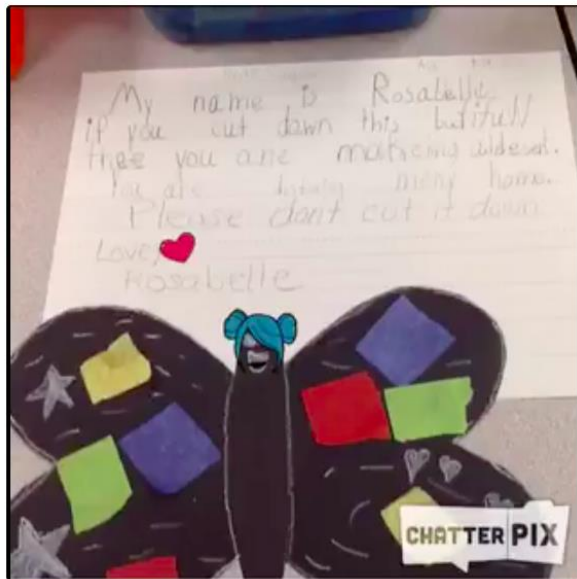 My name is Rosabelle
if you cut down this butifull
you are
You are many home.
Please dont cut it down
Love,
Rosabelle
CHATTERPIX